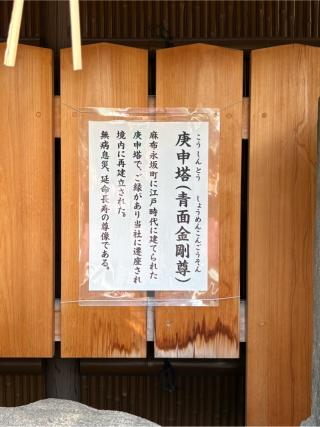 庚申塔(青面金剛尊)
こうしんとう しょうめんこんごうそん
麻布永坂町に江戸時代に建てられた
庚申塔で、ご縁があり当社に遷座され
境内に再建立された。
無病息災、延命長寿の尊像である。